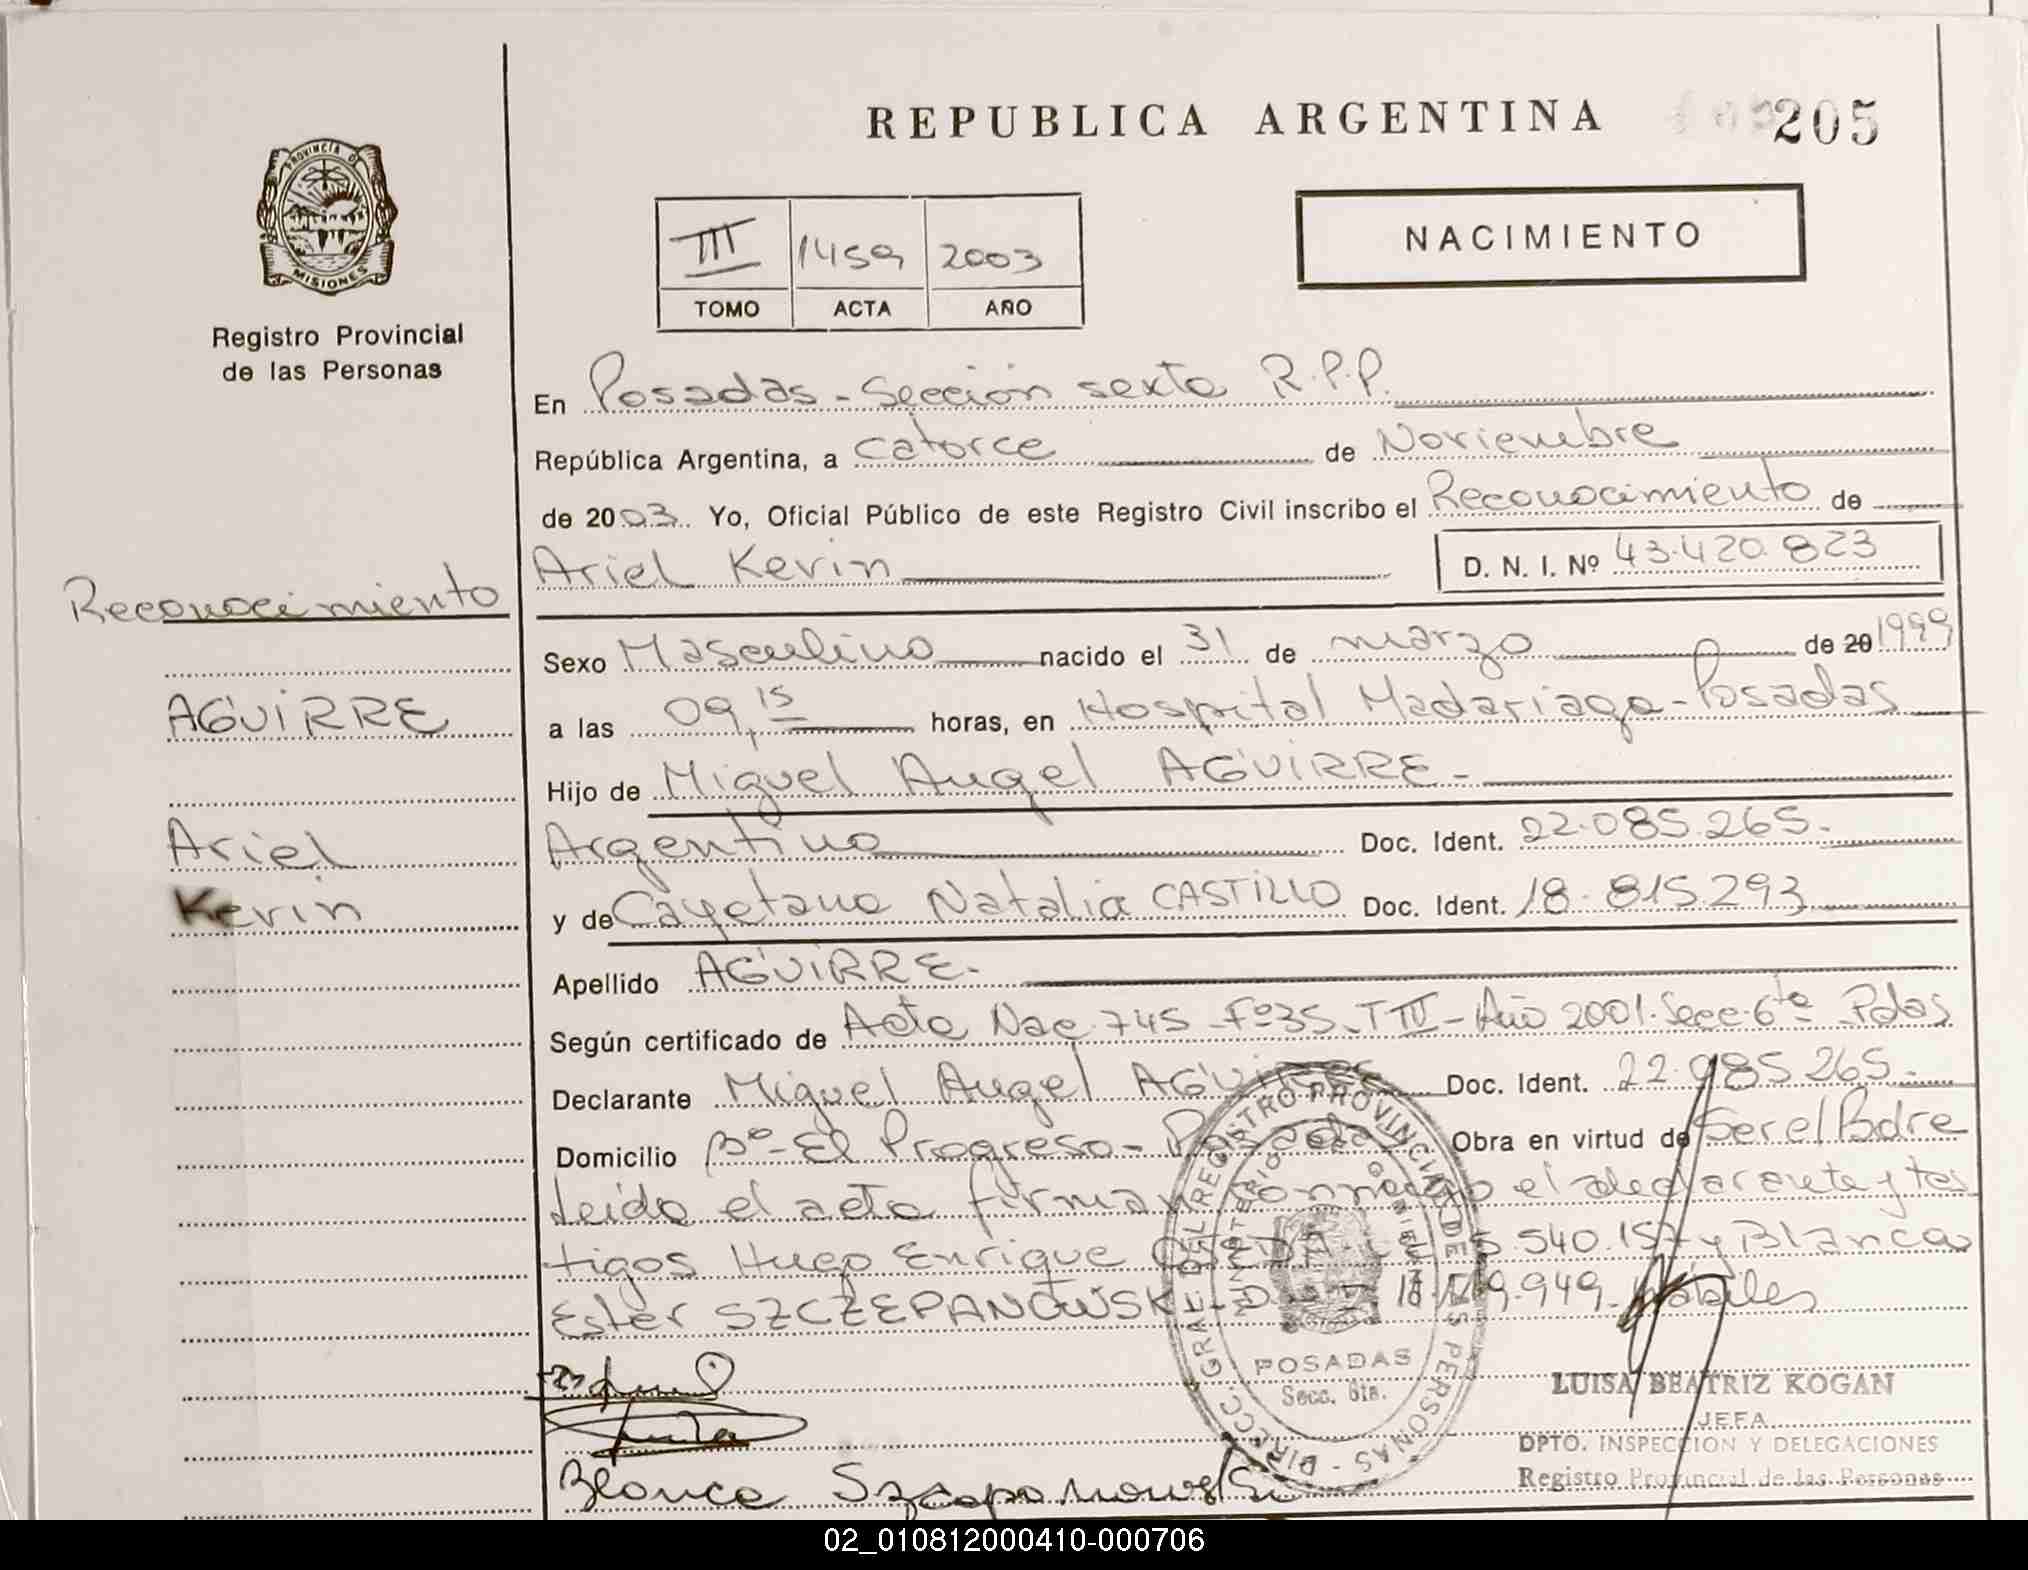 REPUBLICA ARGENTINA
205
PROVINCIA DE
MISIONES
Registro Provincial
de las Personas
III 1459 2003
TOMO ACTA AÑO
NACIMIENTO
En Posadas - Sección sexta R.P.P.
República Argentina, a catorce de Noviembre
de 2003. Yo, Oficial Público de este Registro Civil inscribo el Reconocimiento de
Ariel Kevin D. N. I. Nº 43.420.823
Reconocimiento
AGUIRRE
Ariel
Kevin
Sexo Masculino nacido el 31 de marzo de 20 1999
a las 09,15 horas, en Hospital Madariaga - Posadas
Hijo de Miguel Angel AGUIRRE -
Argentino Doc. Ident. 22.085.265.
y de Cayetana Natalia CASTILLO Doc. Ident. 18.815.293
Apellido AGUIRRE.
Según certificado de Acta Nac. 745 - Fº35 - T III - Año 2001. Secc. 6ta Pdas
Declarante Miguel Angel AGUIRRE Doc. Ident. 22.985.265.
Domicilio Bº - El Progreso - Posadas Obra en virtud de Ser el Padre
Leída el acta firman conmigo el declarante y tes
tigos Hugo Enrique 540.157 y Blanca
Ester SZCZEPANOWSKI 949 hábiles
DIRECC. GRAL DEL REGISTRO PROVINCIAL DE LAS PERSONAS
MINISTERIO DE GOBIERNO
POSADAS
Secc. 6ta.
LUISA BEATRIZ KOGAN
JEFA
DPTO. INSPECCION Y DELEGACIONES
Registro Provincial de las Personas
Blanca
02_010812000410-000706